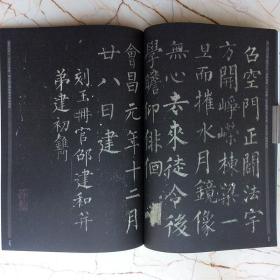 召空門正闢法宇
方開崢嶸棟梁一
旦而摧水月鏡像
無心去來徒令後
學瞻仰徘徊
會昌元年十二月
廿八日建
刻玉冊官邵建和并
弟建初鐫